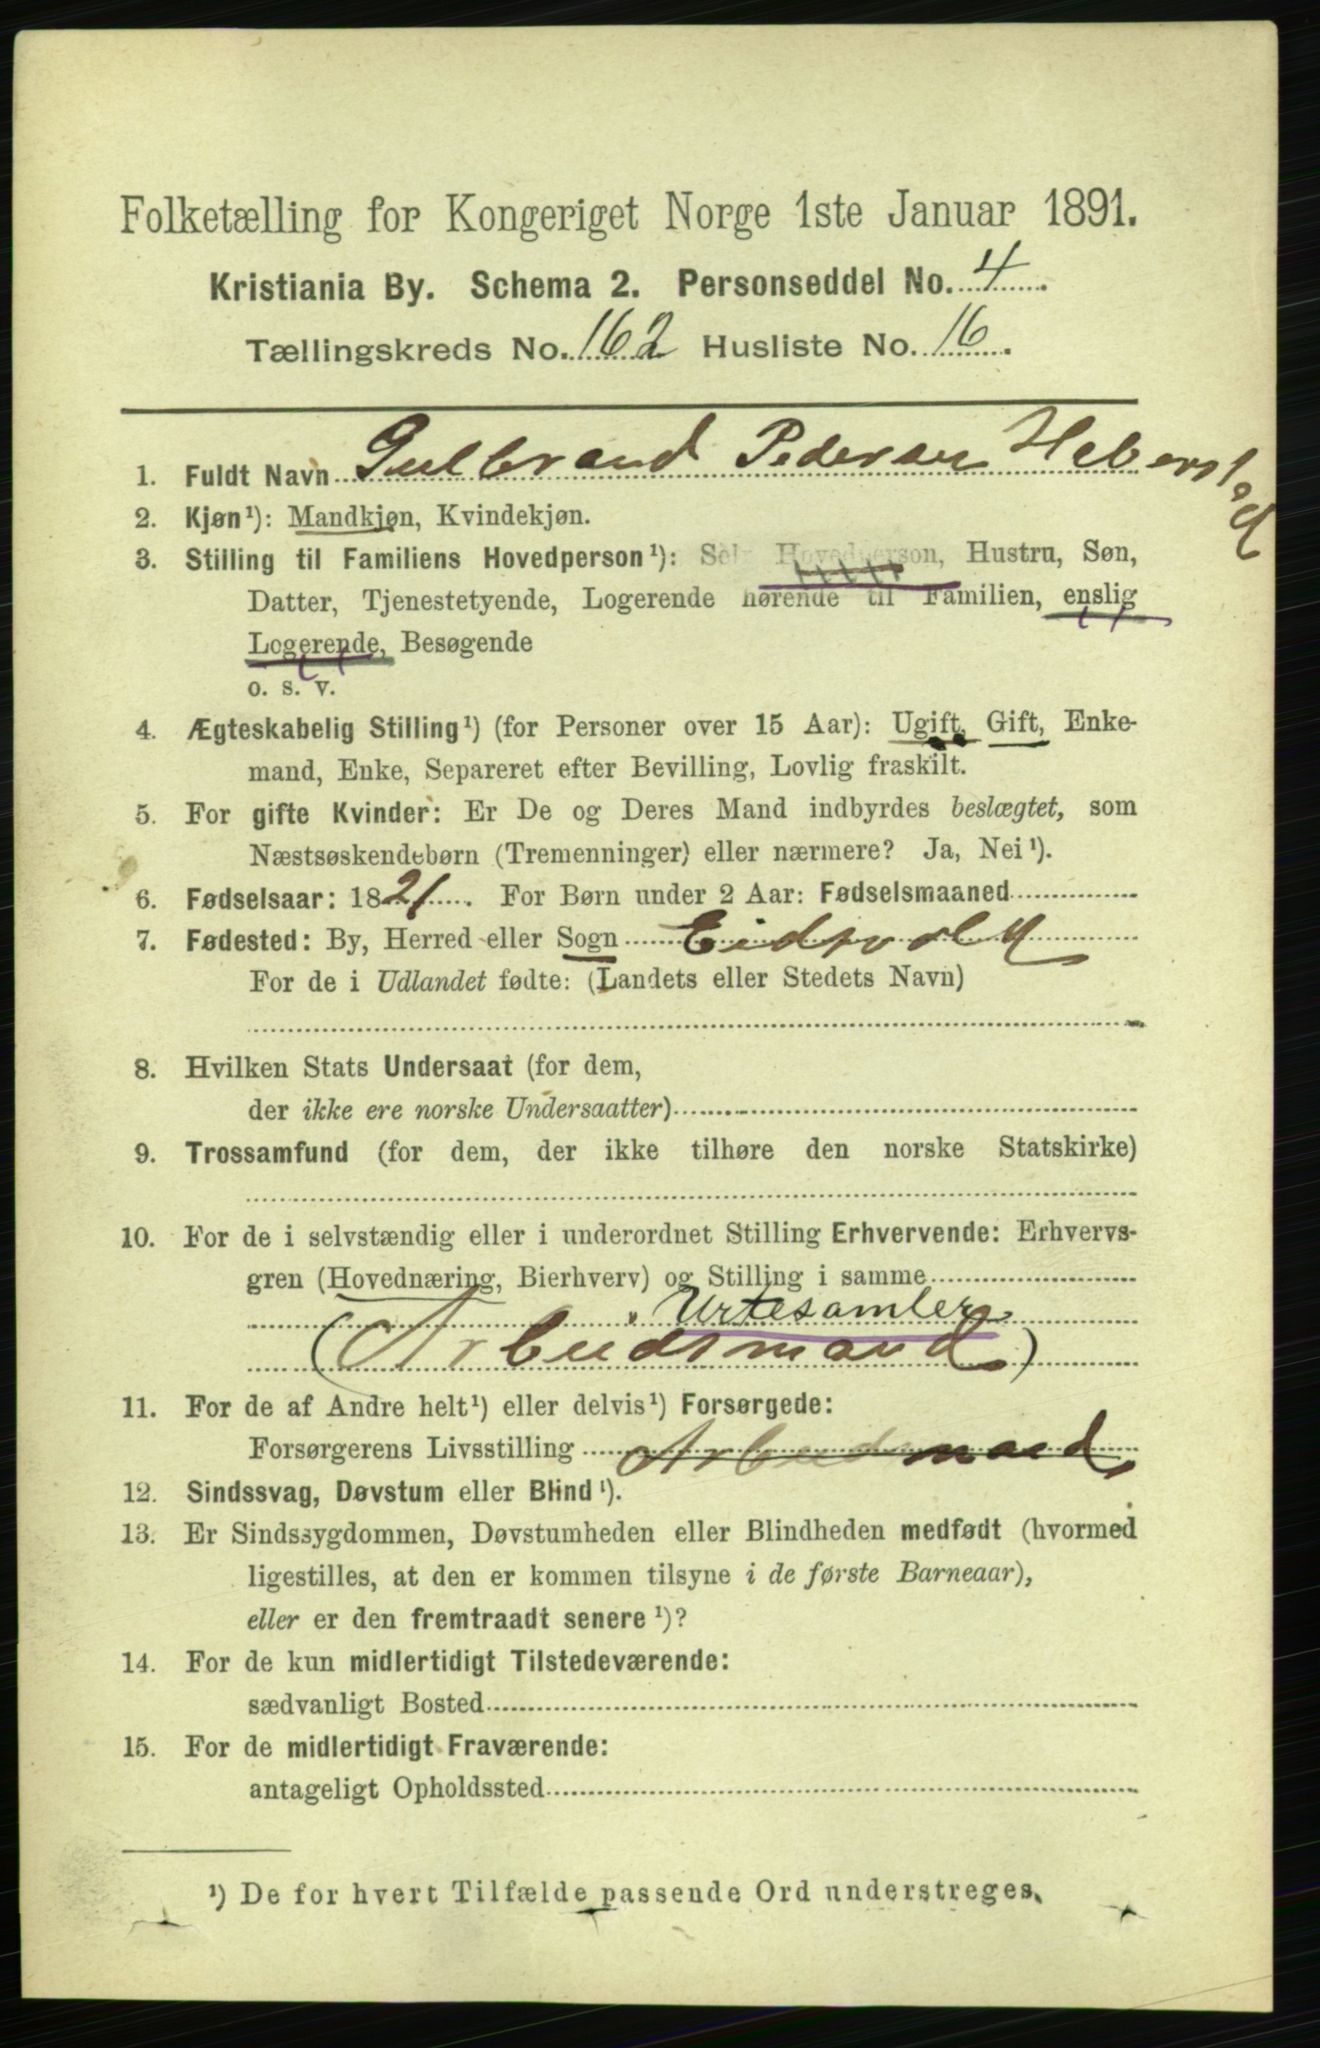 Folketælling for Kongeriget Norge 1ste Januar 1891.
Kristiania By. Schema 2. Personseddel No. 4.
Tællingskreds No. 162 Husliste No. 16.
1. Fuldt Navn Gulbrand Pedersen Haberstad
2. Kjøn¹): Mandkjøn, Kvindekjøn.
3. Stilling til Familiens Hovedperson¹): Selv Hovedperson, Hustru, Søn,
Datter, Tjenestetyende, Logerende hørende til Familien, enslig
Logerende, Besøgende
o. s. v.
4. Ægteskabelig Stilling¹) (for Personer over 15 Aar): Ugift, Gift, Enke-
mand, Enke, Separeret efter Bevilling, Lovlig fraskilt.
5. For gifte Kvinder: Er De og Deres Mand indbyrdes beslægtet, som
Næstsøskendebørn (Tremenninger) eller nærmere? Ja, Nei¹).
6. Fødselsaar: 1821. For Børn under 2 Aar: Fødselsmaaned
7. Fødested: By, Herred eller Sogn Eidsvold
For de i Udlandet fødte: (Landets eller Stedets Navn)
8. Hvilken Stats Undersaat (for dem,
der ikke ere norske Undersaatter)
9. Trossamfund (for dem, der ikke tilhøre den norske Statskirke)
10. For de i selvstændig eller i underordnet Stilling Erhvervende: Erhvervs-
gren (Hovednæring, Bierhverv) og Stilling i samme
Urtesamler
(Arbeidsmand)
11. For de af Andre helt¹) eller delvis¹) Forsørgede:
Forsørgerens Livsstilling Arbeidsmand,
12. Sindssvag, Døvstum eller Blind¹).
13. Er Sindssygdommen, Døvstumheden eller Blindheden medfødt (hvormed
ligestilles, at den er kommen tilsyne i de første Barneaar),
eller er den fremtraadt senere¹)?
14. For de kun midlertidigt Tilstedeværende:
sædvanligt Bosted
15. For de midlertidigt Fraværende:
antageligt Opholdssted
¹) De for hvert Tilfælde passende Ord understreges.